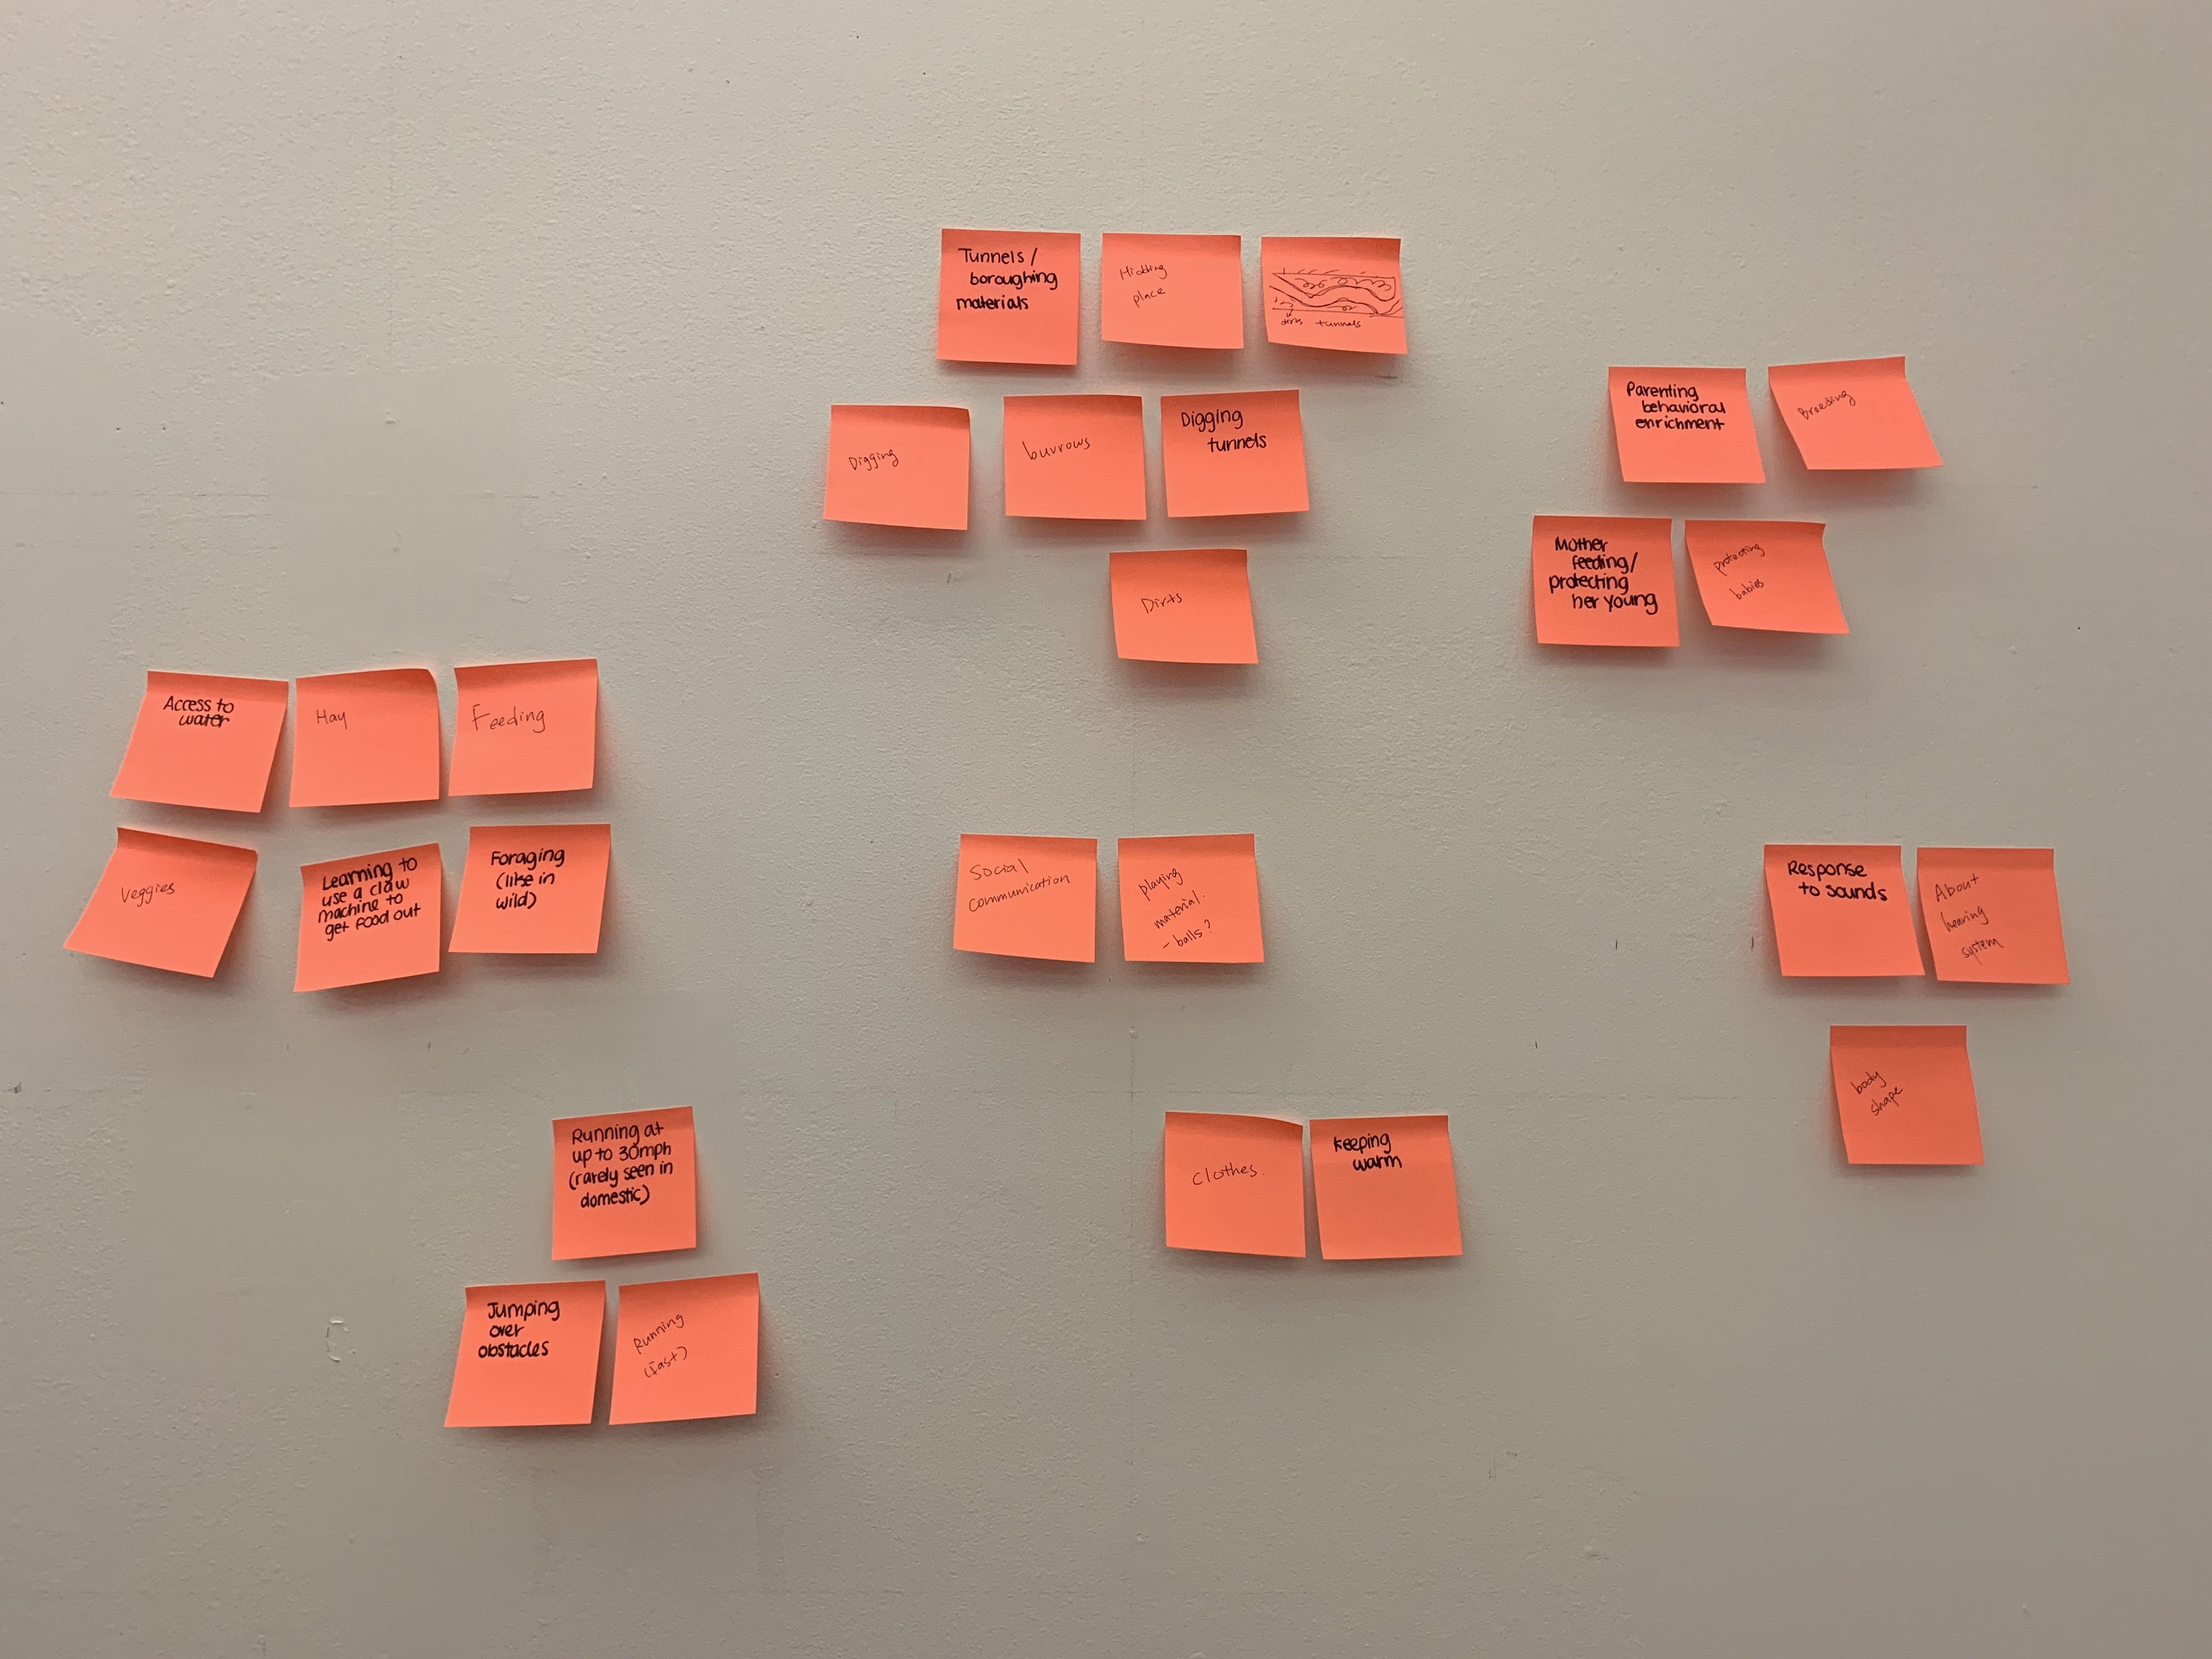 Tunnels /
boroughing
materials
Hidding
place
dirts tunnels
Digging
burrows
Digging
tunnels
Dirts
Parenting
behavioral
enrichment
Breeding
Mother
feeding/
protecting
her young
protecting
babies
Access to
water
Hay
Feeding
Veggies
Learning to
use a claw
machine to
get food out
Foraging
(like in
wild)
Social
communication
playing
material.
- balls?
Response
to sounds
About
hearing
system
body
shape
Running at
up to 30mph
(rarely seen in
domestic)
Jumping
over
obstacles
Running
(fast)
clothes.
keeping
warm